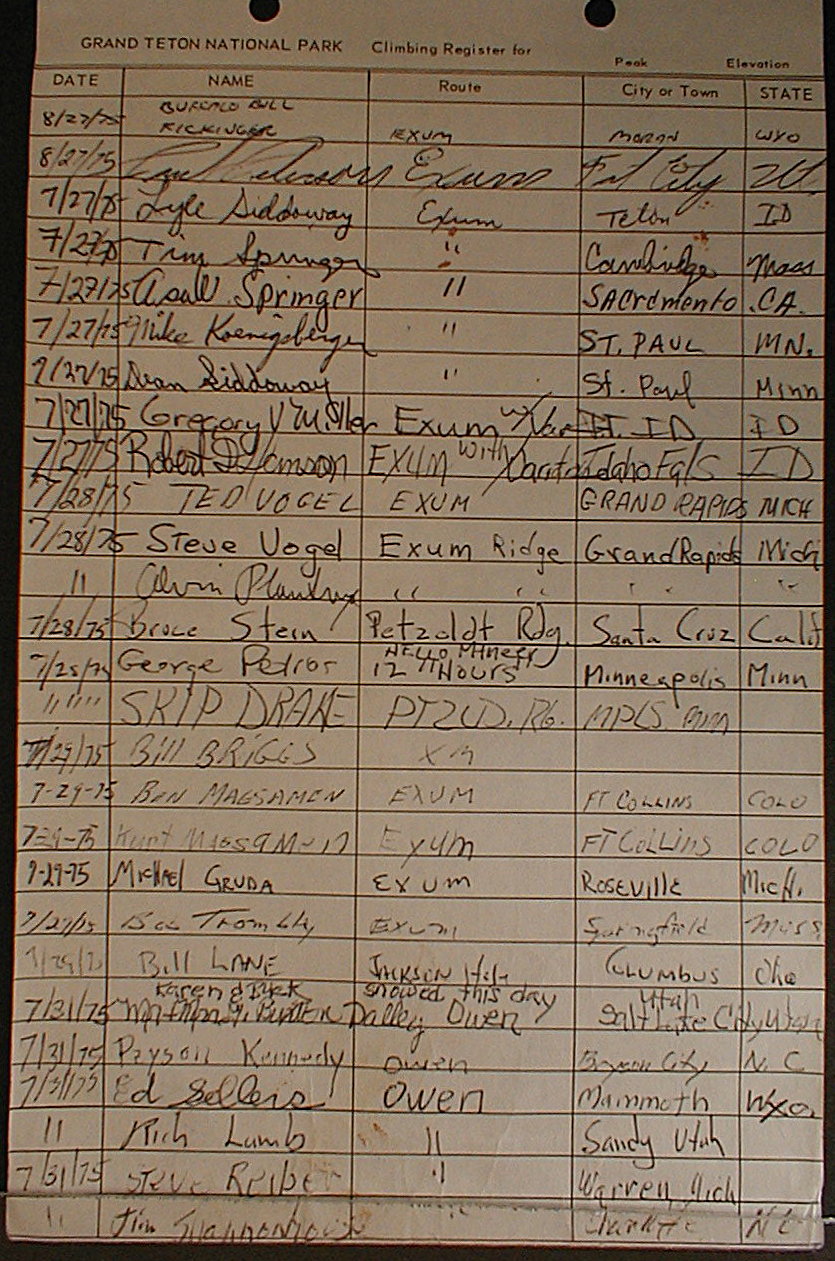 GRAND TETON NATIONAL PARK Climbing Register for
Peak Elevation
DATE NAME Route City or Town STATE
BUFFALO BILL
8/27/75 EXUM MORAN WYO
8/27/75 Exum Fat City
7/27/75 Lyle Siddoway Exum Teton ID
7/27/75 Tim Springer " Cambridge Mass
7/27/75 Springer " SACramento CA.
7/27/75 Mike Koenigsberger " ST. PAUL MN.
7/27/75 Dean Siddoway " St. Paul Minn
7/27/75 Gregory V Miller Exum w/ ID
7/27/75 Robert EXUM with Idaho Falls ID
7/28/75 TED VOGEL EXUM GRAND RAPIDS MICH
7/28/75 Steve Vogel Exum Ridge Grand Rapids Mich
" Alvin " " " " "
7/28/75 Bruce Stein Petzoldt Rdg. Santa Cruz Calif
HELLO
7/28/75 George 12 HOURS Minneapolis Minn
" " " SKIP DRAKE PTZLD. RG. MPLS
7/29/75 Bill BRIGGS XM
7-29-75 BEN MAGSAMEN EXUM FT COLLINS COLO
7-29-75 Kurt Magsamen Exum FT COLLINS COLO
7-29-75 MICHAEL GRUDA EXUM ROSEVILLE MicH.
7/29/75 Bob Trombly EXUM Springfield Mass
7/29/75 Bill LANE JACKSON Hole COLUMBUS Ohio
Karen & Dick snowed this day Utah
7/31/75 Dalley Owen Salt Lake City Utah
7/31/75 Payson Kennedy Owen Bryson City N.C
7/31/75 Ed Sellers Owen Mammoth Wyo.
" Rich Lumb " Sandy Utah
7/31/75 STEVE " Warren, Mich
" Jim Shannonhouse " " Charlotte NC